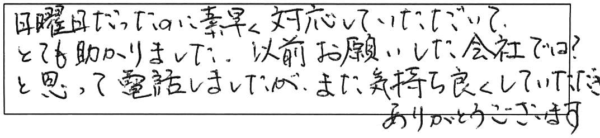 日曜日だったのに素早く対応していただいて、
とても助かりました。以前お願いした会社では?
と思って電話しましたが、また気持ち良くしていただき
ありがとうございます